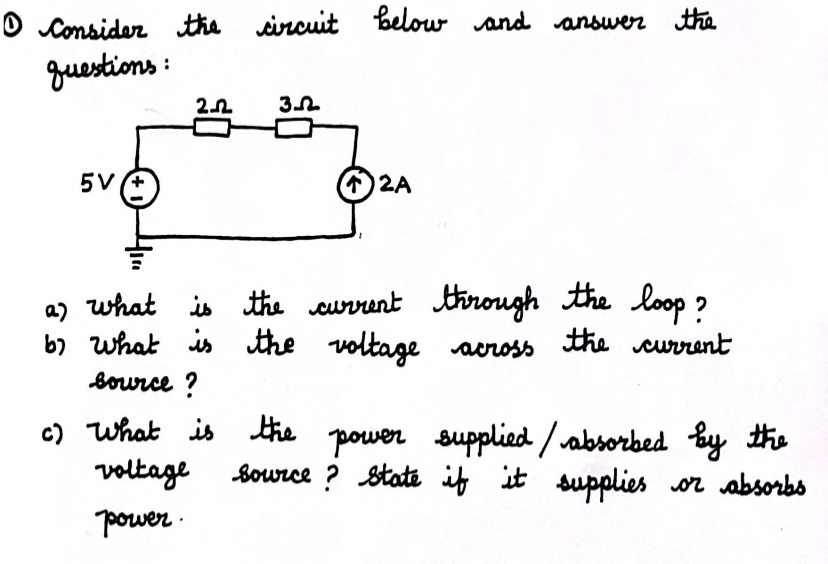 ① Consider the circuit below and answer the
questions :
2Ω 3Ω
5V + - ↑ 2A
a) What is the current through the loop ?
b) What is the voltage across the current
source ?
c) What is the power supplied / absorbed by the
voltage source ? State if it supplies or absorbs
power.